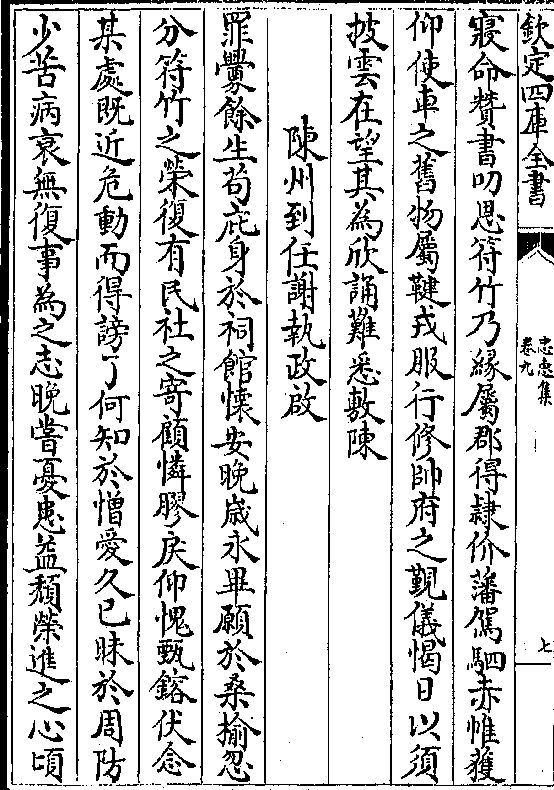 欽定四庫全書
忠惠集
卷九
七
寢命贊書叨恩符竹乃緣屬郡得隷价藩駕駟赤帷獲
仰使車之舊物屬鞬戎服行修帥府之覲儀愒日以須
披雲在望其為欣誦難悉敷陳
陳州到任謝執政啟
罪釁餘生茍庇身於祠館懷安晚歲永畢願於桑榆忽
分符竹之榮復有民社之寄顧憐膠戾仰愧甄鎔伏念
某處既近危動而得謗了何知於憎愛久已昧於周防
少苦病哀無復事為之志晚嘗憂患益頽榮進之心頃